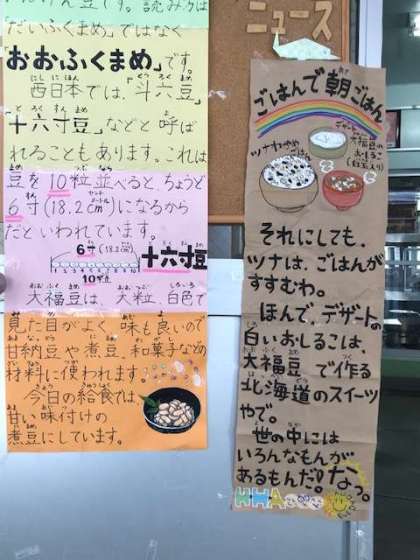 んげん豆です。読み方は
だいふくまめ」ではなく
おおふくまめ」です。
西日本では、「斗六豆」
「十六寸豆」などと呼ば
れることもあります。これは
豆を10粒並べると、ちょうど
6寸(18.2㌢㍍)になるから
だといわれています。
6寸(18.2㌢㍍)
10粒
十六寸豆
大福豆は、大粒、白色で
見た目がよく、味も良いので
甘納豆や煮豆、和菓子などの
材料に使われます。
今日の給食では、
甘い味付けの
煮豆にしています。
ニュース
ごはんで朝ごはん
ツナわかめごはん
デザート
大福豆の
白いおしるこ
それにしても、
ツナは、ごはんが
すすむわ。
ほんで、デザートの
白いおしるこは、
大福豆で作る
北海道のスイーツ
やで。
世の中には
いろんなもんが
あるもんだ!なっ。